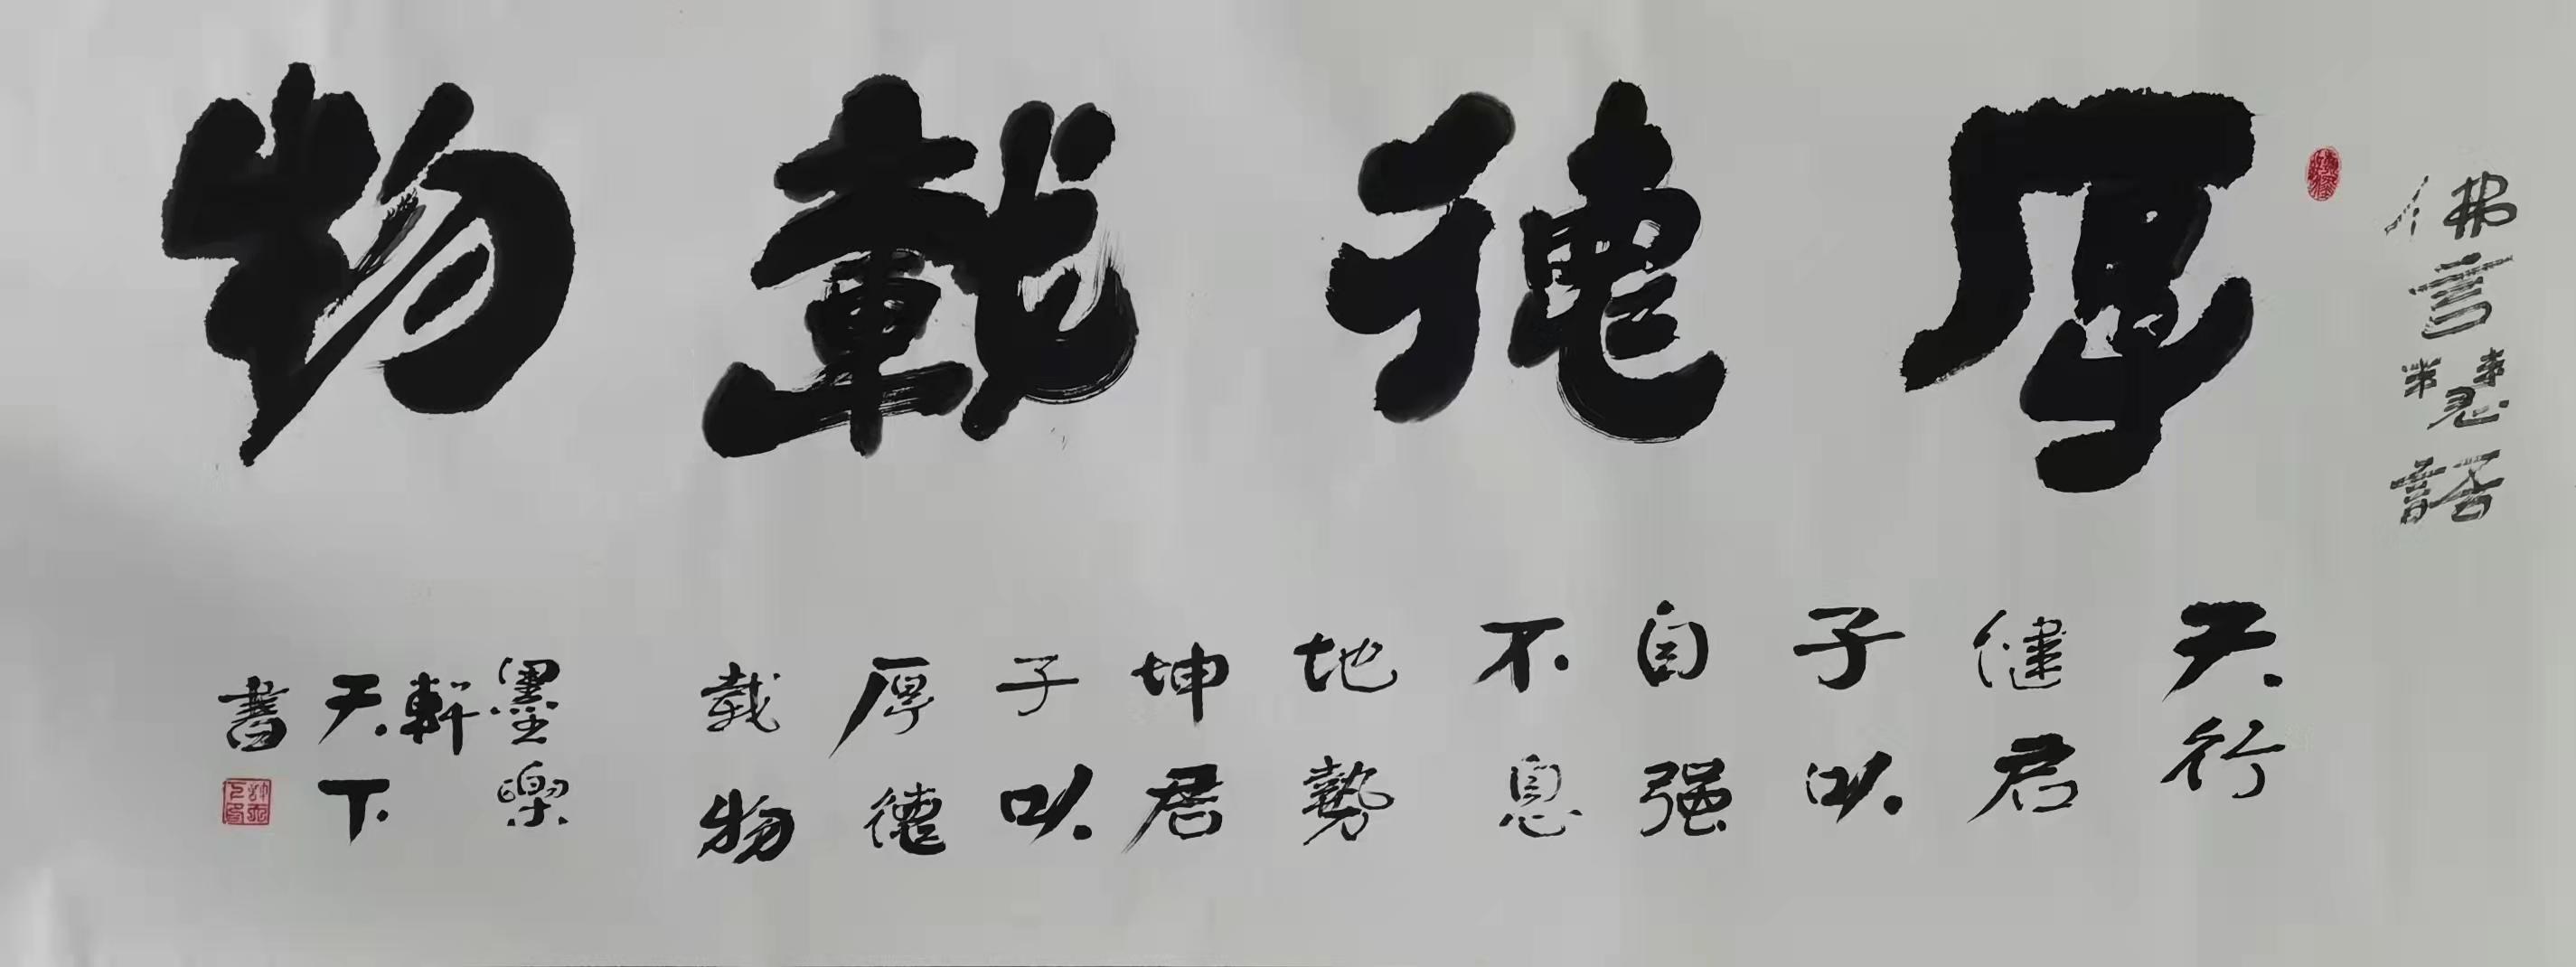 佛言慧話
厚德載物
天行
健君
子以
自强
不息
地勢
坤君
子以
厚德
載物
墨樂
軒
天下
書